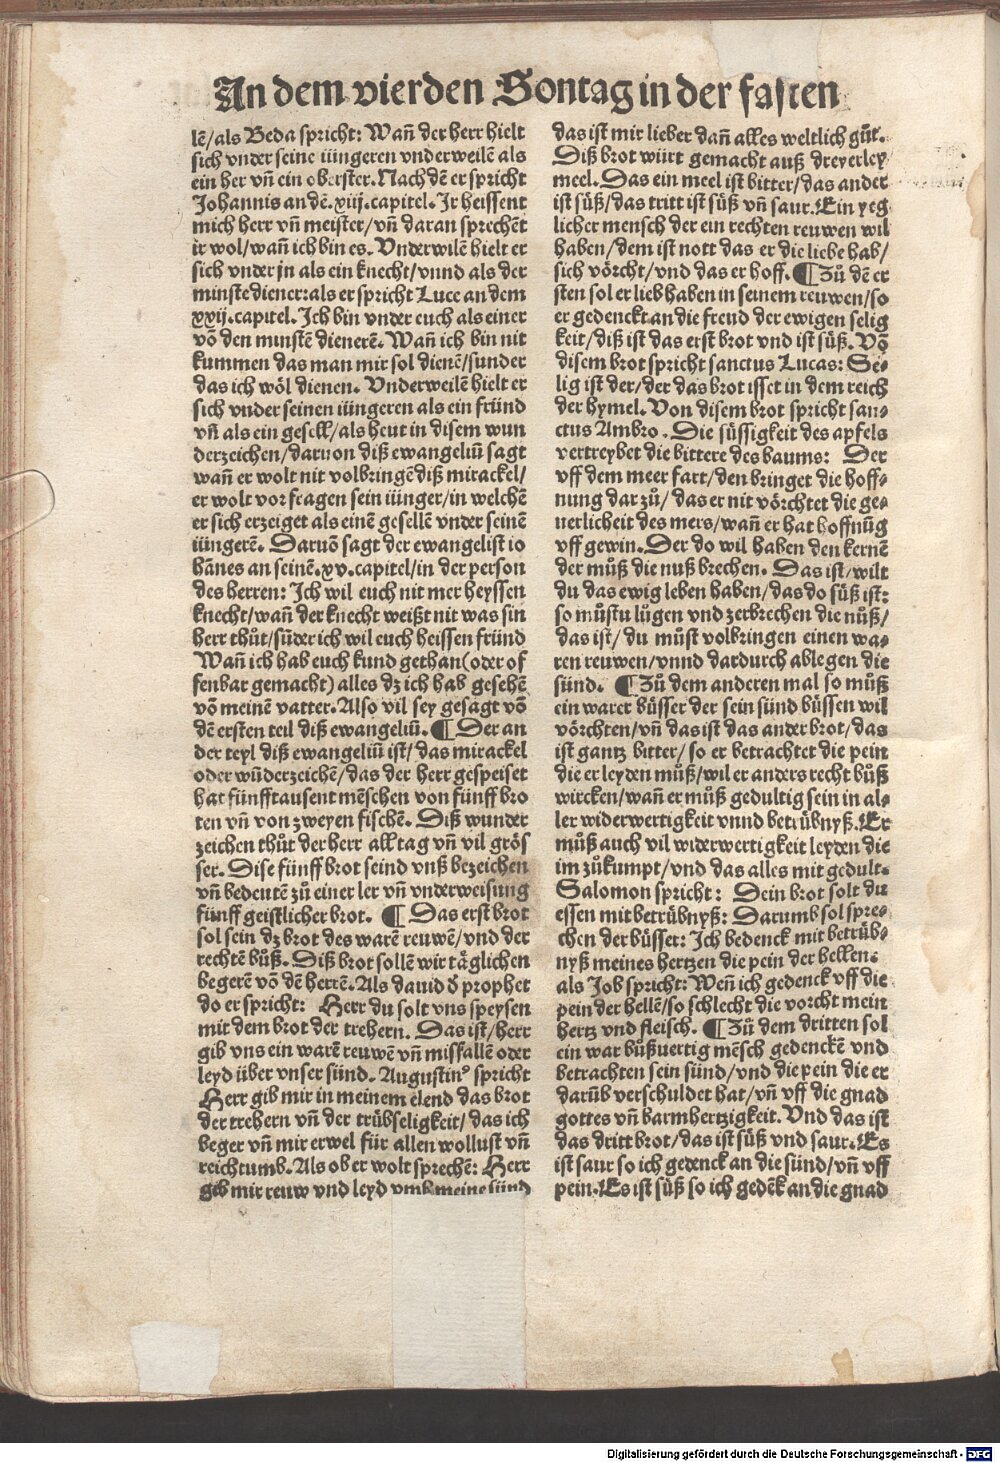 An dem vierden Sontag in der fasten
lē/als Beda spricht: Wañ der herr hielt
sich vnder seine iüngeren vnderweilē als
ein her vñ ein oberster. Nach dē er spricht
Johannis an dē.xiij.capitel. Jr heissent
mich herr vñ meister/vñ daran sprechēt
ir wol/wañ ich bin es. Vnderwilē hielt er
sich vnder jn als ein knecht/vnnd als der
minste diener:als er spricht Luce an dem
xxij.capitel. Ich bin vnder euch als einer
võ den minstē dienerē. Wañ ich bin nit
kummen das man mir sol dienē/sunder
das ich wöl dienen. Vnderweilē hielt er
sich vnder seinen iüngeren als ein fründ
vñ als ein gesell/als heut in disem wun
derzeichen/daruon diß ewangeliū sagt
wañ er wolt nit volbringē diß mirackel/
er wolt vor fragen sein iünger/in welchē
er sich erzeiget als einē gesellē vnder seinē
iüngerē. Daruõ sagt der ewangelist io
hānes an seinē.xv.capitel/in der person
des herren: Ich wil euch nit mer heyssen
knecht/wañ der knecht weißt nit was sin
herr thůt/sūder ich wil euch heissen fründ
Wañ ich hab euch kund gethan(oder of
fenbar gemacht) alles dz ich hab gesehē
võ meinē vatter. Also vil sey gesagt võ
dē ersten teil diß ewangeliū. ¶ Der an
der teyl diß ewangeliū ist/das mirackel
oder wūderzeichē/das der herr gespeiset
hat fünfftausent mēschen von fünff bro
ten vñ von zweyen fischē. Diß wunder
zeichen thůt der herr all tag vñ vil grös
ser. Dise fünff brot seind vnß bezeichen
vñ bedeutē zů einer ler vñ vnderweisung
fünff geistlicher brot. ¶ Das erst brot
sol sein dz brot des warē reuwē/vnd der
rechtē bůß. Diß brot sollē wir täglichen
begerē võ dē herrē. Als dauid d̄ prophet
do er spricht: Herr du solt vns speysen
mit dem brot der trehern. Das ist/herr
gib vns ein warē reuwē vñ misfallē oder
leyd über vnser sünd. Augustinꝰ spricht
Herr gib mir in meinem elend das brot
der trehern vñ der trübseligkeit/das ich
beger vñ mir erwel für allen wollust vñ
reichtumb. Als ob er wolt sprechē: Herr
gib mir reuw vnd leyd vmb meine sünd
das ist mir lieber dañ alles weltlich gůt.
Diß brot würt gemacht auß dreyerley
meel. Das ein meel ist bitter/das ander
ist süß/das tritt ist süß vñ saur. Ein yeg
licher mensch der ein rechten reuwen wil
haben/dem ist nott das er die liebe hab/
sich vörcht/vnd das er hoff. ¶ Zů dē er
sten sol er lieb haben in seinem reuwen/so
er gedenckt an die freud der ewigen selig
keit/diß ist das erst brot vnd ist süß. Võ
disem brot spricht sanctus Lucas: Se⸗
lig ist der/der das brot isset in dem reich
der hymel. Von disem brot spricht san⸗
ctus Ambro. Die süssigkeit des apfels
vertreybet die bittere des baums: Der
vff dem meer fart/den bringet die hoff⸗
nung dar zů/das er nit vörchtet die ge⸗
uerlicheit des mers/wañ er hat hoffnūg
vff gewin. Der do wil haben den kernē
der můß die nuß brechen. Das ist/wilt
du das ewig leben haben/das do süß ist:
so můstu lůgen vnd zerbrechen die nůß/
das ist/du můst volbringen einen wa⸗
ren reuwen/vnnd dardurch ablegen die
sünd. ¶ Zů dem anderen mal so můß
ein warer büsser der sein sünd büssen wil
vörchten/vñ das ist das ander brot/das
ist gantz bitter/so er betrachtet die pein
die er leyden můß/wil er anders recht bůß
wircken/wañ er můß gedultig sein in al⸗
ler widerwertigkeit vnnd betrübnyß. Er
můß auch vil widerwertigkeit leyden die
im zůkumpt/vnd das alles mit gedult.
Salomon spricht: Dein brot solt du
essen mit betrübnyß: Darumb sol spre⸗
chen der büsser: Ich bedenck mit betrüb⸗
nyß meines hertzen die pein der hellen.
als Job spricht: Wen̄ ich gedenck vff die
pein der hellē/so schlecht die vorcht mein
hertz vnd fleisch. ¶ Zů dem dritten sol
ein war bůßuertig mēsch gedenckē vnd
betrachten sein sünd/vnd die pein die er
darūb verschuldet hat/vñ vff die gnad
gottes vñ barmhertzigkeit. Vnd das ist
das dritt brot/das ist süß vnd saur. Es
ist saur so ich gedenck an die sünd/vñ vff
pein. Es ist süß so ich gedēck an die gnad
Digitalisierung gefördert durch die Deutsche Forschungsgemeinschaft - DFG